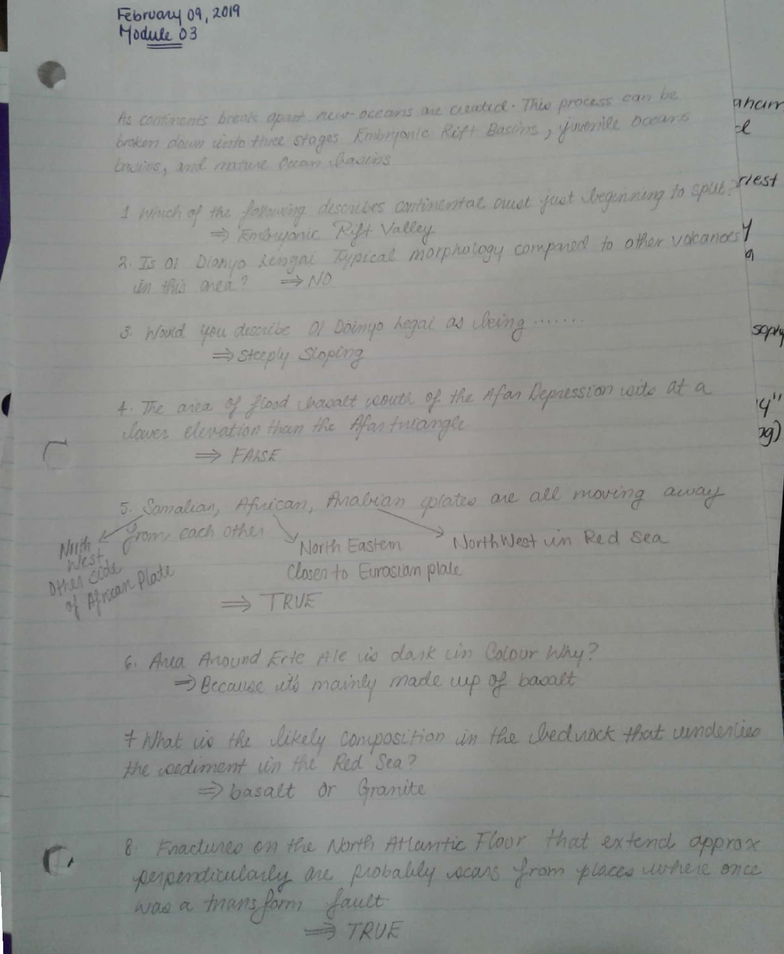 February 09, 2019
Module 03
As continents break apart new oceans are created. This process can be
broken down into three stages Embryonic Rift Basins, juvenile oceans
basins, and mature Ocean basins
1 Which of the following describes continental crust just beginning to split?
⇒ Embryonic Rift Valley
2. Is Ol Dionyo Lengai Typical morphology compared to other volcanoes
in this area? ⇒ NO
3. Would you describe Ol Doinyo Legai as being .......
⇒ Steeply Sloping
4. The area of flood basalt south of the Afar Depression sits at a
lower elevation than the Afar triangle
⇒ FALSE
5. Somalian, African, Arabian plates are all moving away
from each other
North
West
Other side
of African Plate
North Eastern
Closer to Eurasian plate
NorthWest in Red Sea
⇒ TRUE
6. Area Around Erte Ale is dark in Colour Why?
⇒ Because it's mainly made up of basalt
7 What is the likely composition in the bedrock that underlies
the sediment in the Red Sea?
⇒ basalt or Granite
8. Fractures on the North Atlantic Floor that extend approx
perpendicularly are probably scars from places where once
was a transform fault
⇒ TRUE